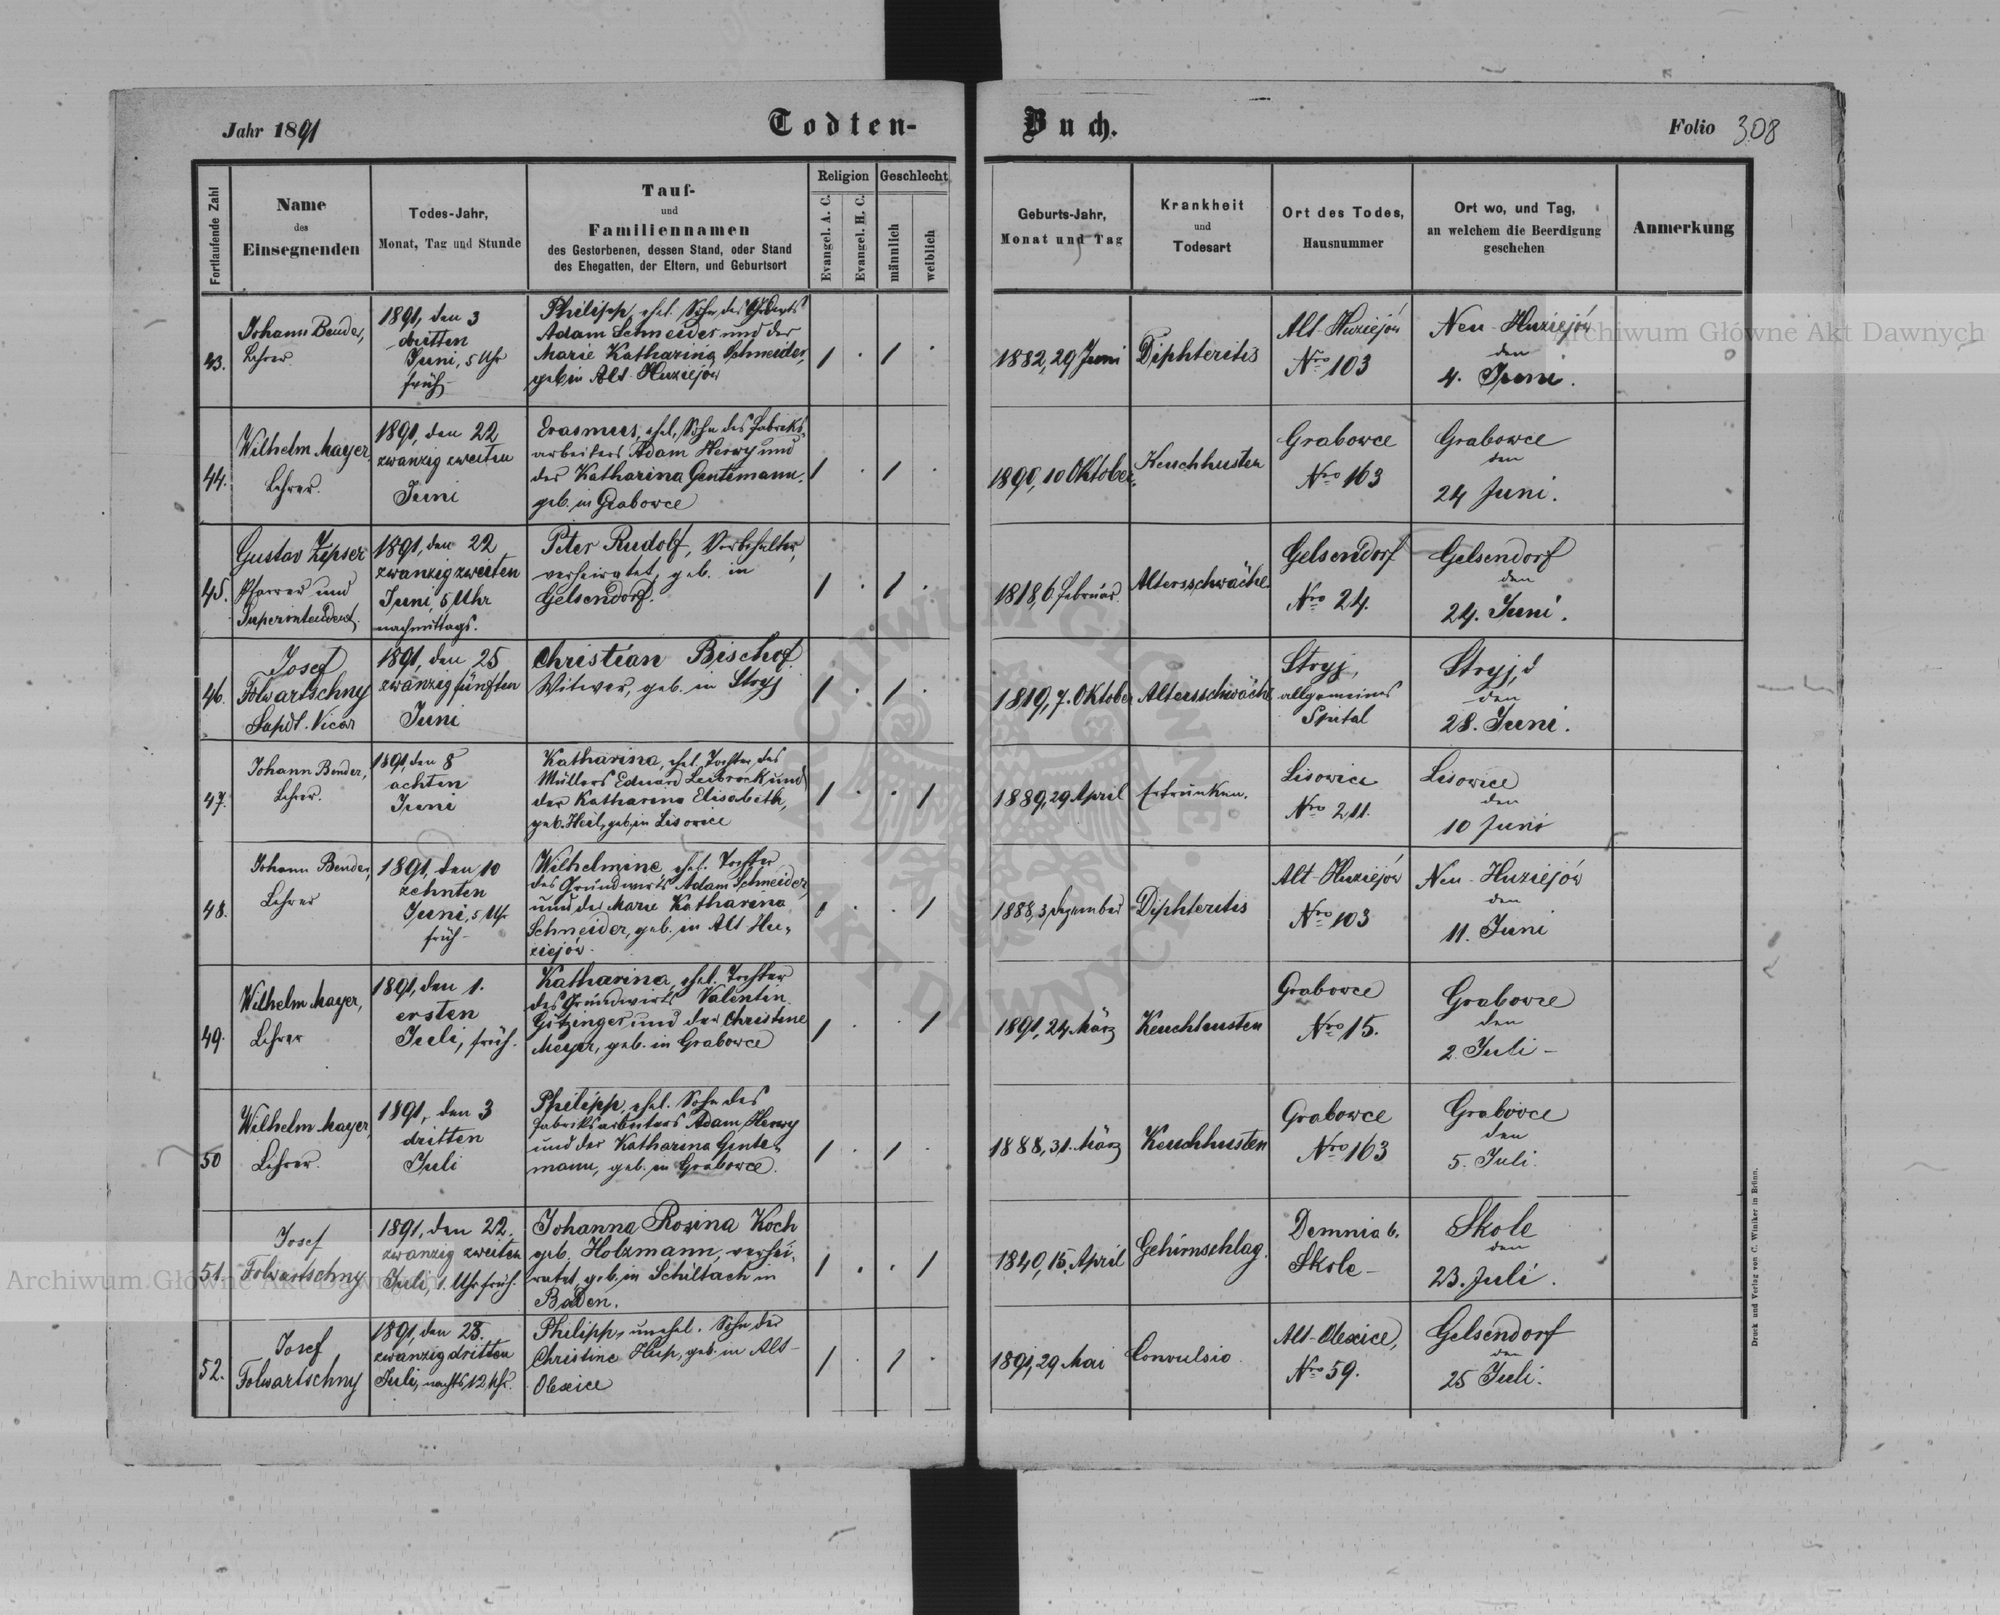 Jahr 1891
Todten-
Buch.
Folio 308
Fortlaufende Zahl
Name
des
Einsegnenden
Todes-Jahr,
Monat, Tag und Stunde
Tauf-
und
Familiennamen
des Gestorbenen, dessen Stand, oder Stand
des Ehegatten, der Eltern, und Geburtsort
Religion
Evangel. A. C.
Evangel. H. C.
Geschlecht
männlich
weiblich
Geburts-Jahr,
Monat und Tag
Krankheit
und
Todesart
Ort des Todes,
Hausnummer
Ort wo, und Tag,
an welchem die Beerdigung
geschehen
Anmerkung
43.
Johann Bender,
Lehrer.
1891, den 3
dritten
Juni, 5 Uhr
früh
Philipp, ehel. Sohn des
Adam Schneider und der
Marie Katharina Schneider,
geb. in Alt-Huziejów
1 . 1 .
1882, 29 Juni
Diphteritis
Alt-Huziejów
Nro 103
Neu-Huziejów
den
4. Juni.
44.
Wilhelm Mayer,
Lehrer.
1891, den 22
zwanzig zweiten
Juni
Erasmus, ehel. Sohn des Fabriks-
arbeiters Adam Herwy und
der Katharina Gentemann,
geb. in Grabowce
1 . 1 .
1890, 10 Oktober
Keuchhusten
Grabowce
Nro 163
Grabowce
den
24 Juni.
45.
Gustav Zipser
Pfarrer und
Superintendent.
1891, den 22
zwanzig zweiten
Juni, 5 Uhr
nachmittags.
Peter Rudolf, Vorbehalter,
verheiratet, geb. in
Gelsendorf.
1 . 1 .
1818, 6 Februar
Altersschwäche
Gelsendorf
Nro 24.
Gelsendorf
den
24. Juni.
46.
Josef
Folwartschny
Supdt. Vicar
1891, den 25
zwanzig fünften
Juni
Christian Bischof.
Witwer, geb. in Stryj
1 . 1 .
1819, 7. Oktober
Altersschwäche
Stryj,
allgemeines
Spital
Stryj,
den
28. Juni.
47.
Johann Bender,
Lehrer.
1891, den 8
achten
Juni
Katharina, ehel. Tochter des
Müllers Eduard Leibrock und
der Katharina Elisabeth,
geb. Heil, geb. in Lisowice
1 . . 1
1889, 29 April
Ertrunken.
Lisowice
Nro 211.
Lisowice
den
10 Juni
48.
Johann Bender,
Lehrer
1891, den 10
zehnten
Juni, 5 Uhr
früh
Wilhelmine, ehel. Tochter
des Grundwirts Adam Schneider,
und der Marie Katharina
Schneider, geb. in Alt Hu-
ziejów.
1 . . 1
1888, 3 Dezember
Diphteritis
Alt-Huziejów
Nro 103
Neu-Huziejów
den
11. Juni
49.
Wilhelm Mayer,
Lehrer
1891, den 1.
ersten
Juli, früh.
Katharina, ehel. Tochter
des Grundwirts Valentin
Götzinger und der Christine
Meyer, geb. in Grabowce
1 . . 1
1891, 24. März
Keuchhusten
Grabowce
Nro 15.
Grabowce
den
2. Juli
50
Wilhelm Mayer,
Lehrer.
1891, den 3
dritten
Juli
Philipp, ehel. Sohn des
Fabriksarbeiters Adam Herwy
und der Katharina Gente-
mann, geb. in Grabowce.
1 . 1 .
1888, 31. März
Keuchhusten
Grabowce
Nro 163
Grabowce
den
5. Juli.
51.
Josef
Folwartschny
1891, den 22.
zwanzig zweiten
Juli, 1. Uhr früh.
Johanna Rosina Koch
geb. Holzmann, verhei-
ratet, geb. in Schiltach in
Baden.
1 . . 1
1840, 15. April
Gehirnschlag.
Demnia b.
Skole
Skole
den
23. Juli.
52.
Josef
Folwartschny
1891, den 23.
zwanzig dritten
Juli, nachts, 12 Uhr.
Philipp, unehel. Sohn der
Christine Hup, geb. in Alt-
Olexice
1 . 1 .
1891, 29 Mai
Convulsio.
Alt-Olexice,
Nro 59.
Gelsendorf
den
25 Juli.
Druck und Verlag von C. Winiker in Brünn.
Archiwum Główne Akt Dawnych
Archiwum Główne Akt Dawnych
ARCHIWUM GŁÓWNE AKT DAWNYCH